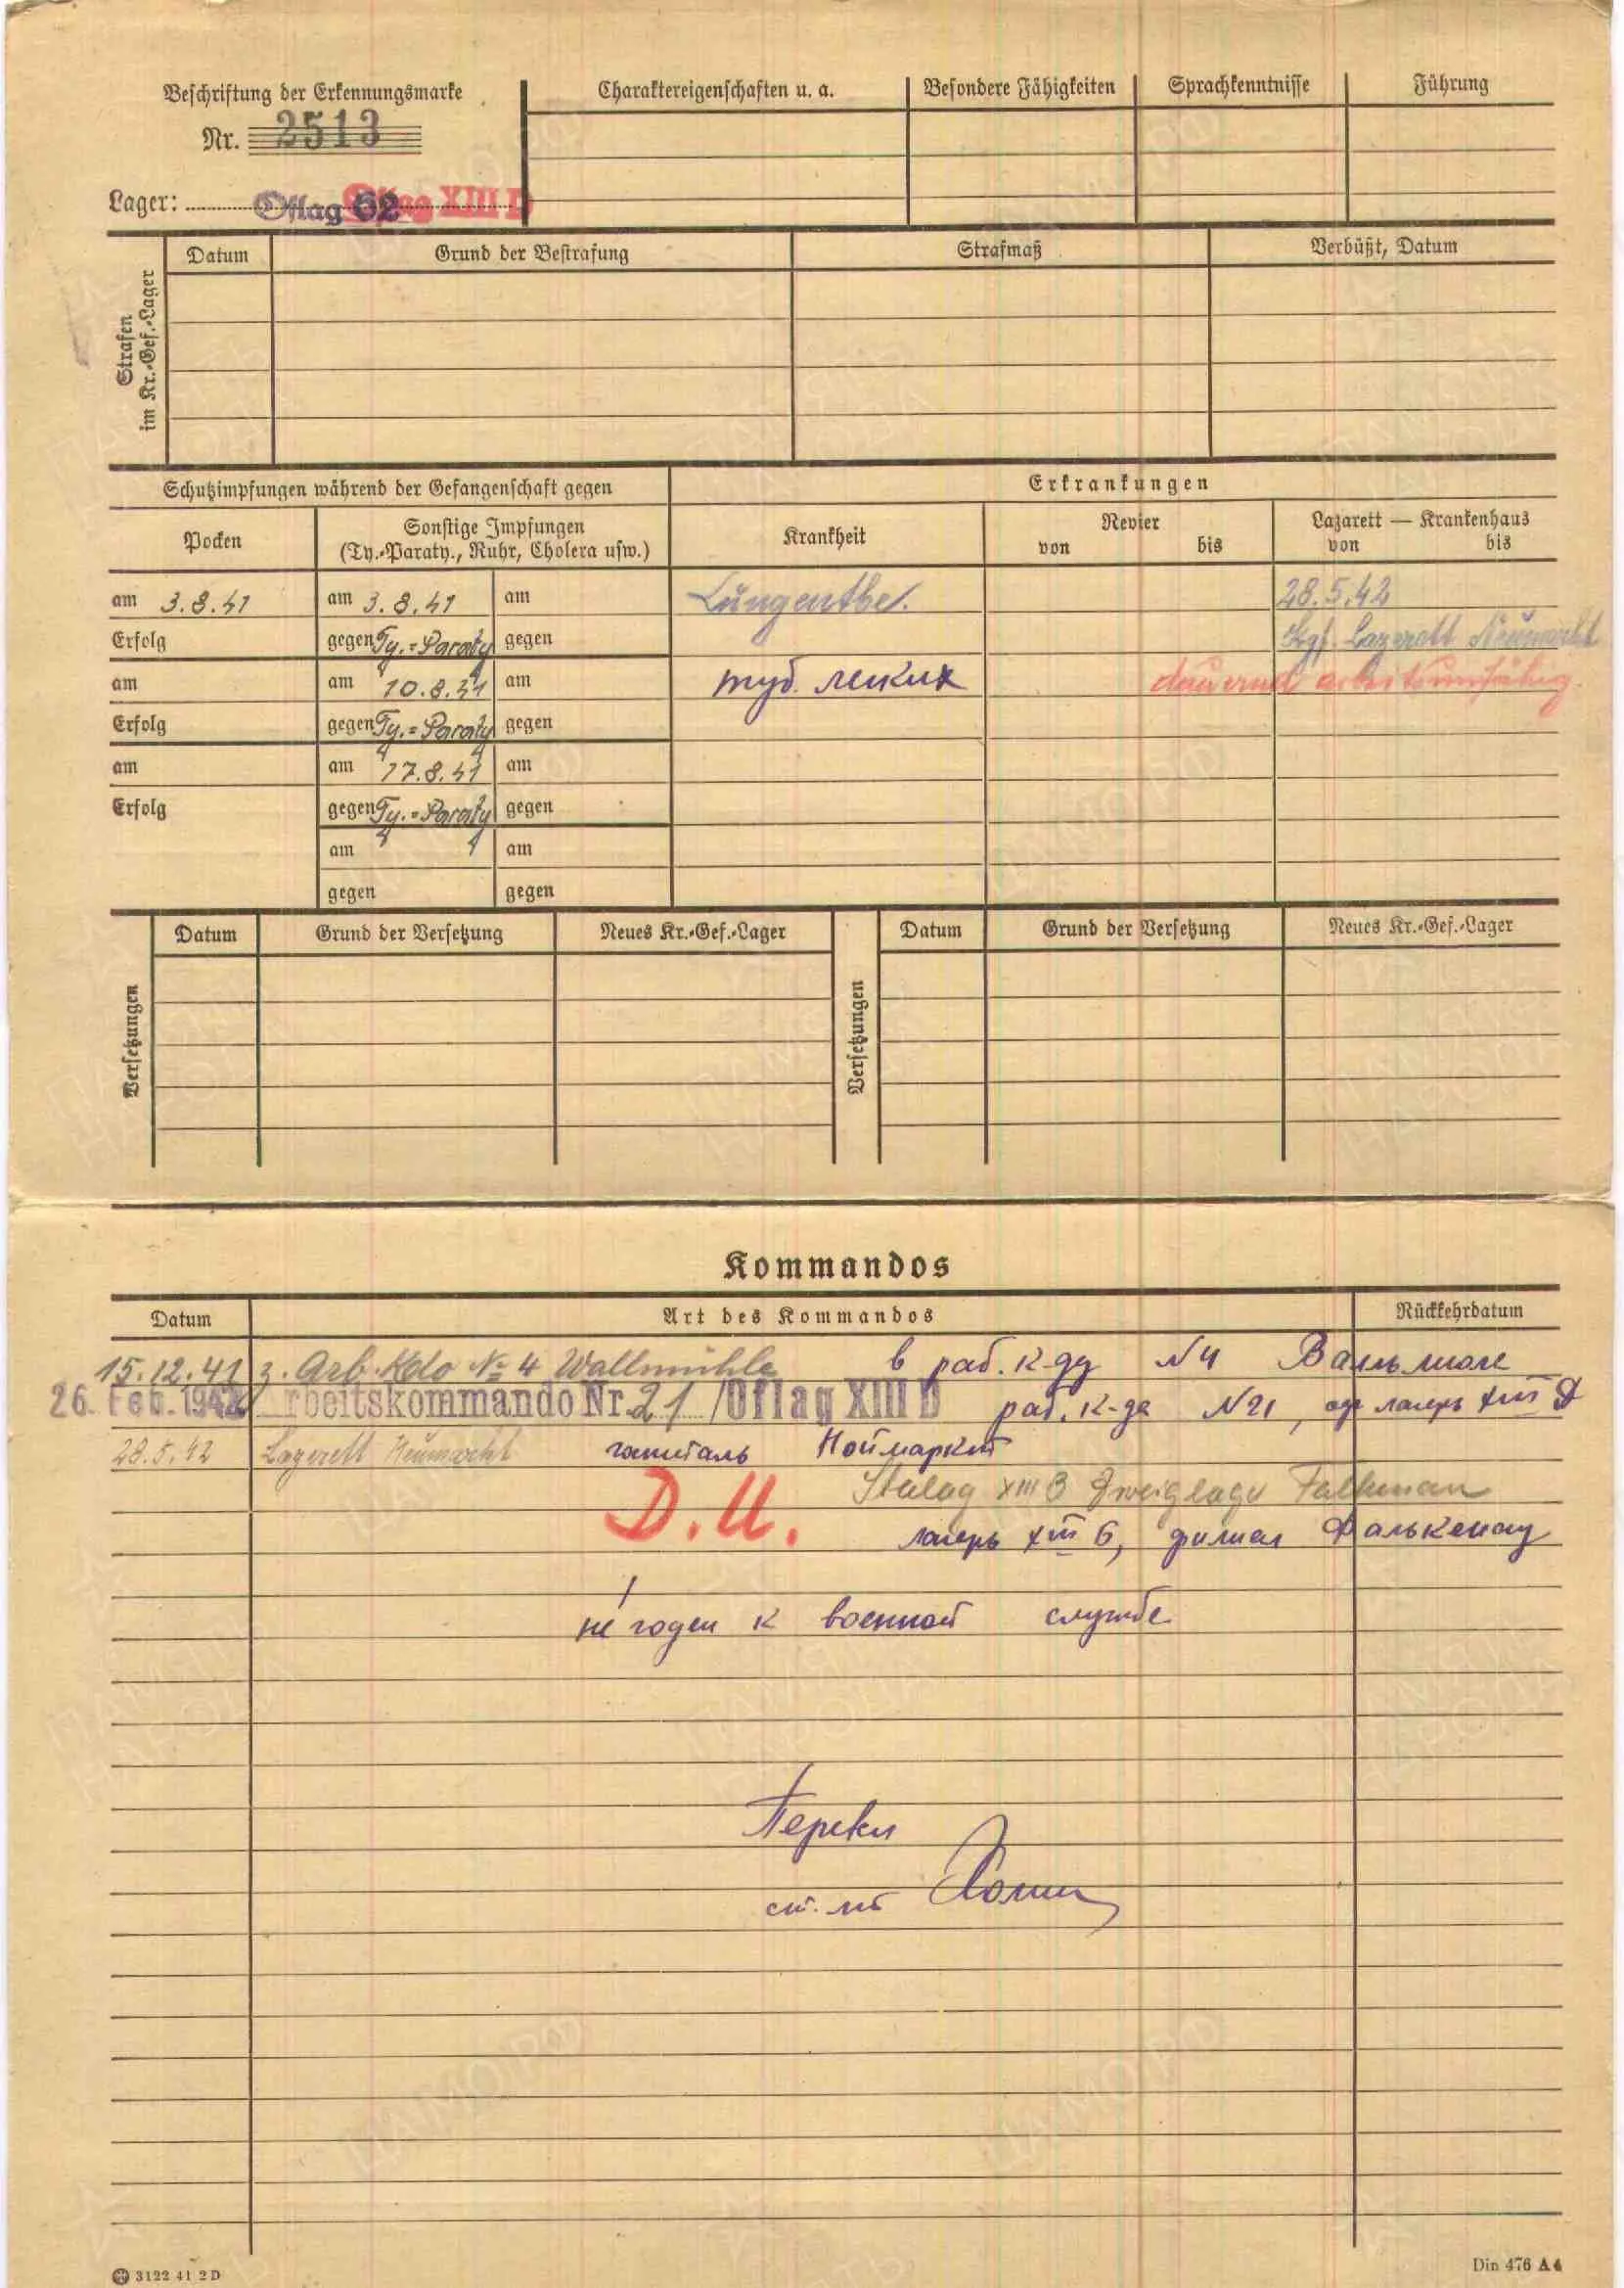 Beschriftung der Erkennungsmarke
Nr. 2513
Lager: Oflag 62 Oflag XIII D
Charaktereigenschaften u. a. Besondere Fähigkeiten Sprachkenntnisse Führung
Strafen im Kr.-Gef.-Lager
Datum Grund der Bestrafung Strafmaß Verbüßt, Datum
Schutzimpfungen während der Gefangenschaft gegen
Erkrankungen
Pocken
Sonstige Impfungen
(Ty.-Paraty., Ruhr, Cholera usw.)
Krankheit
Revier
von bis
Lazarett — Krankenhaus
von bis
am 3.8.41 am 3.8.41 am Lungentbc. 28.5.42
Erfolg gegen Ty.=Paraty gegen Kgf. Lazarett Neumarkt
am am 10.8.41 am туб. легких dauernd arbeitsunfähig.
Erfolg gegen Ty.=Paraty gegen
am am 17.8.41 am
Erfolg gegen Ty.=Paraty gegen
am am
gegen gegen
Versetzungen
Datum Grund der Versetzung Neues Kr.-Gef.-Lager
Versetzungen
Datum Grund der Versetzung Neues Kr.-Gef.-Lager
Kommandos
Datum Art des Kommandos Rückkehrdatum
15.12.41 z. Arb. Kdo № 4 Wallmühle в раб. к-ду N4 Вальмюле
26. Feb. 1942 Arbeitskommando Nr. 21 /Oflag XIII D раб. к-да N21, оф лагерь XIII Д
28.5.42 Lazarett Neumarkt госпиталь Ноймаркт
D.U. Stalag XIII B Zweiglager Falkenau
лагерь XIII б, филиал Фалькенау
не годен к военной службе
Перевел
ст. л-т
3122 41 2 D
Din 476 A 4